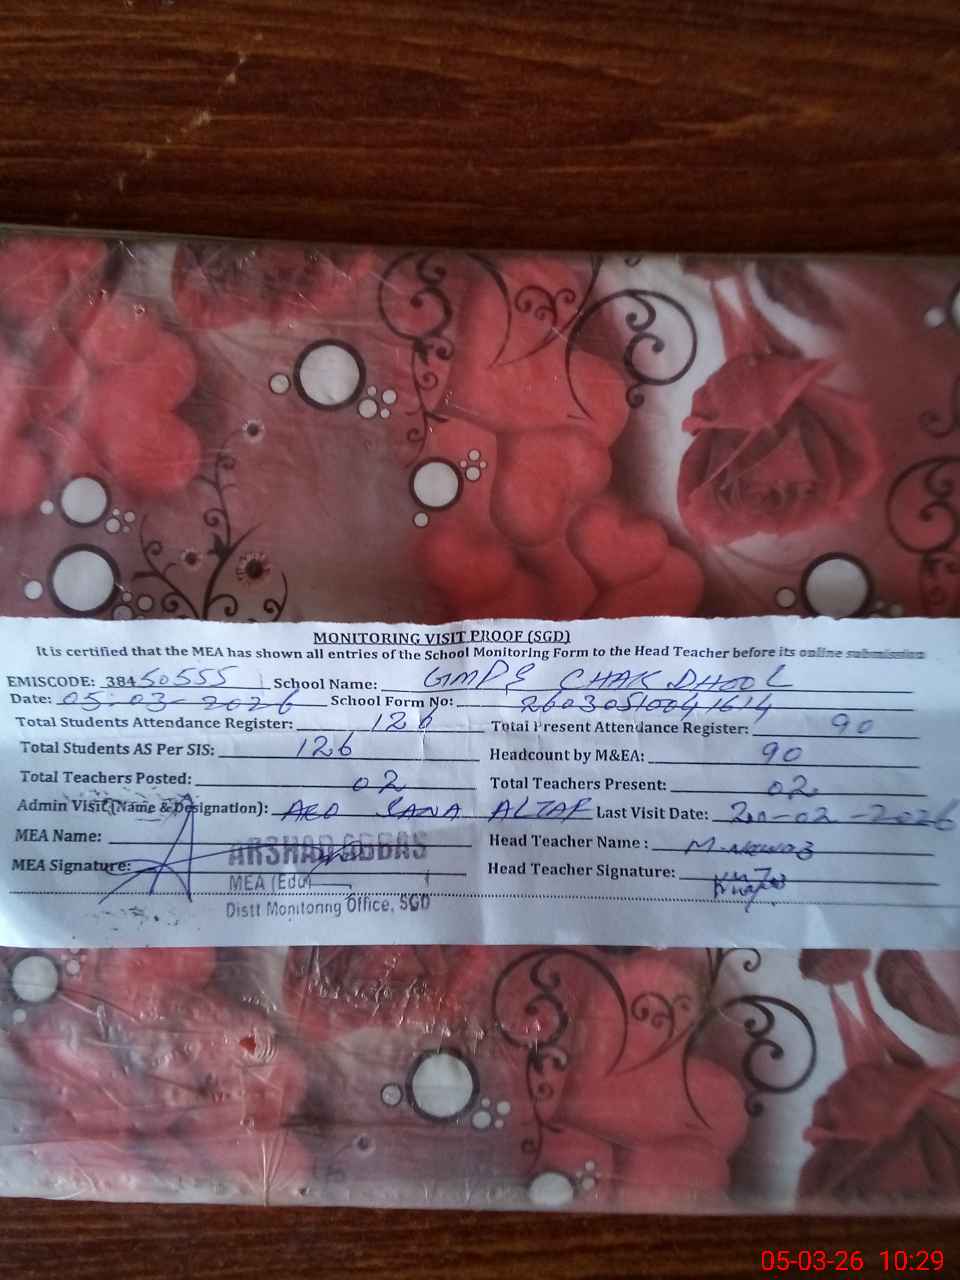 MONITORING VISIT PROOF (SGD)
It is certified that the MEA has shown all entries of the School Monitoring Form to the Head Teacher before its online submission
EMISCODE: 38450555 School Name: GMPS CHAK DHOOL
Date: 05-03-2026 School Form No:
Total Students Attendance Register: 126 Total Present Attendance Register: 90
Total Students AS Per SIS: 126 Headcount by M&EA: 90
Total Teachers Posted: 02 Total Teachers Present: 02
Admin Visit (Name & Designation): AEO SANA ALTAF Last Visit Date: -02-2026
MEA Name: ARSHAD ABBAS Head Teacher Name : M. Nawaz
MEA Signature: Head Teacher Signature:
MEA (Edu)
Distt Monitoring Office, SGD
05-03-26 10:29